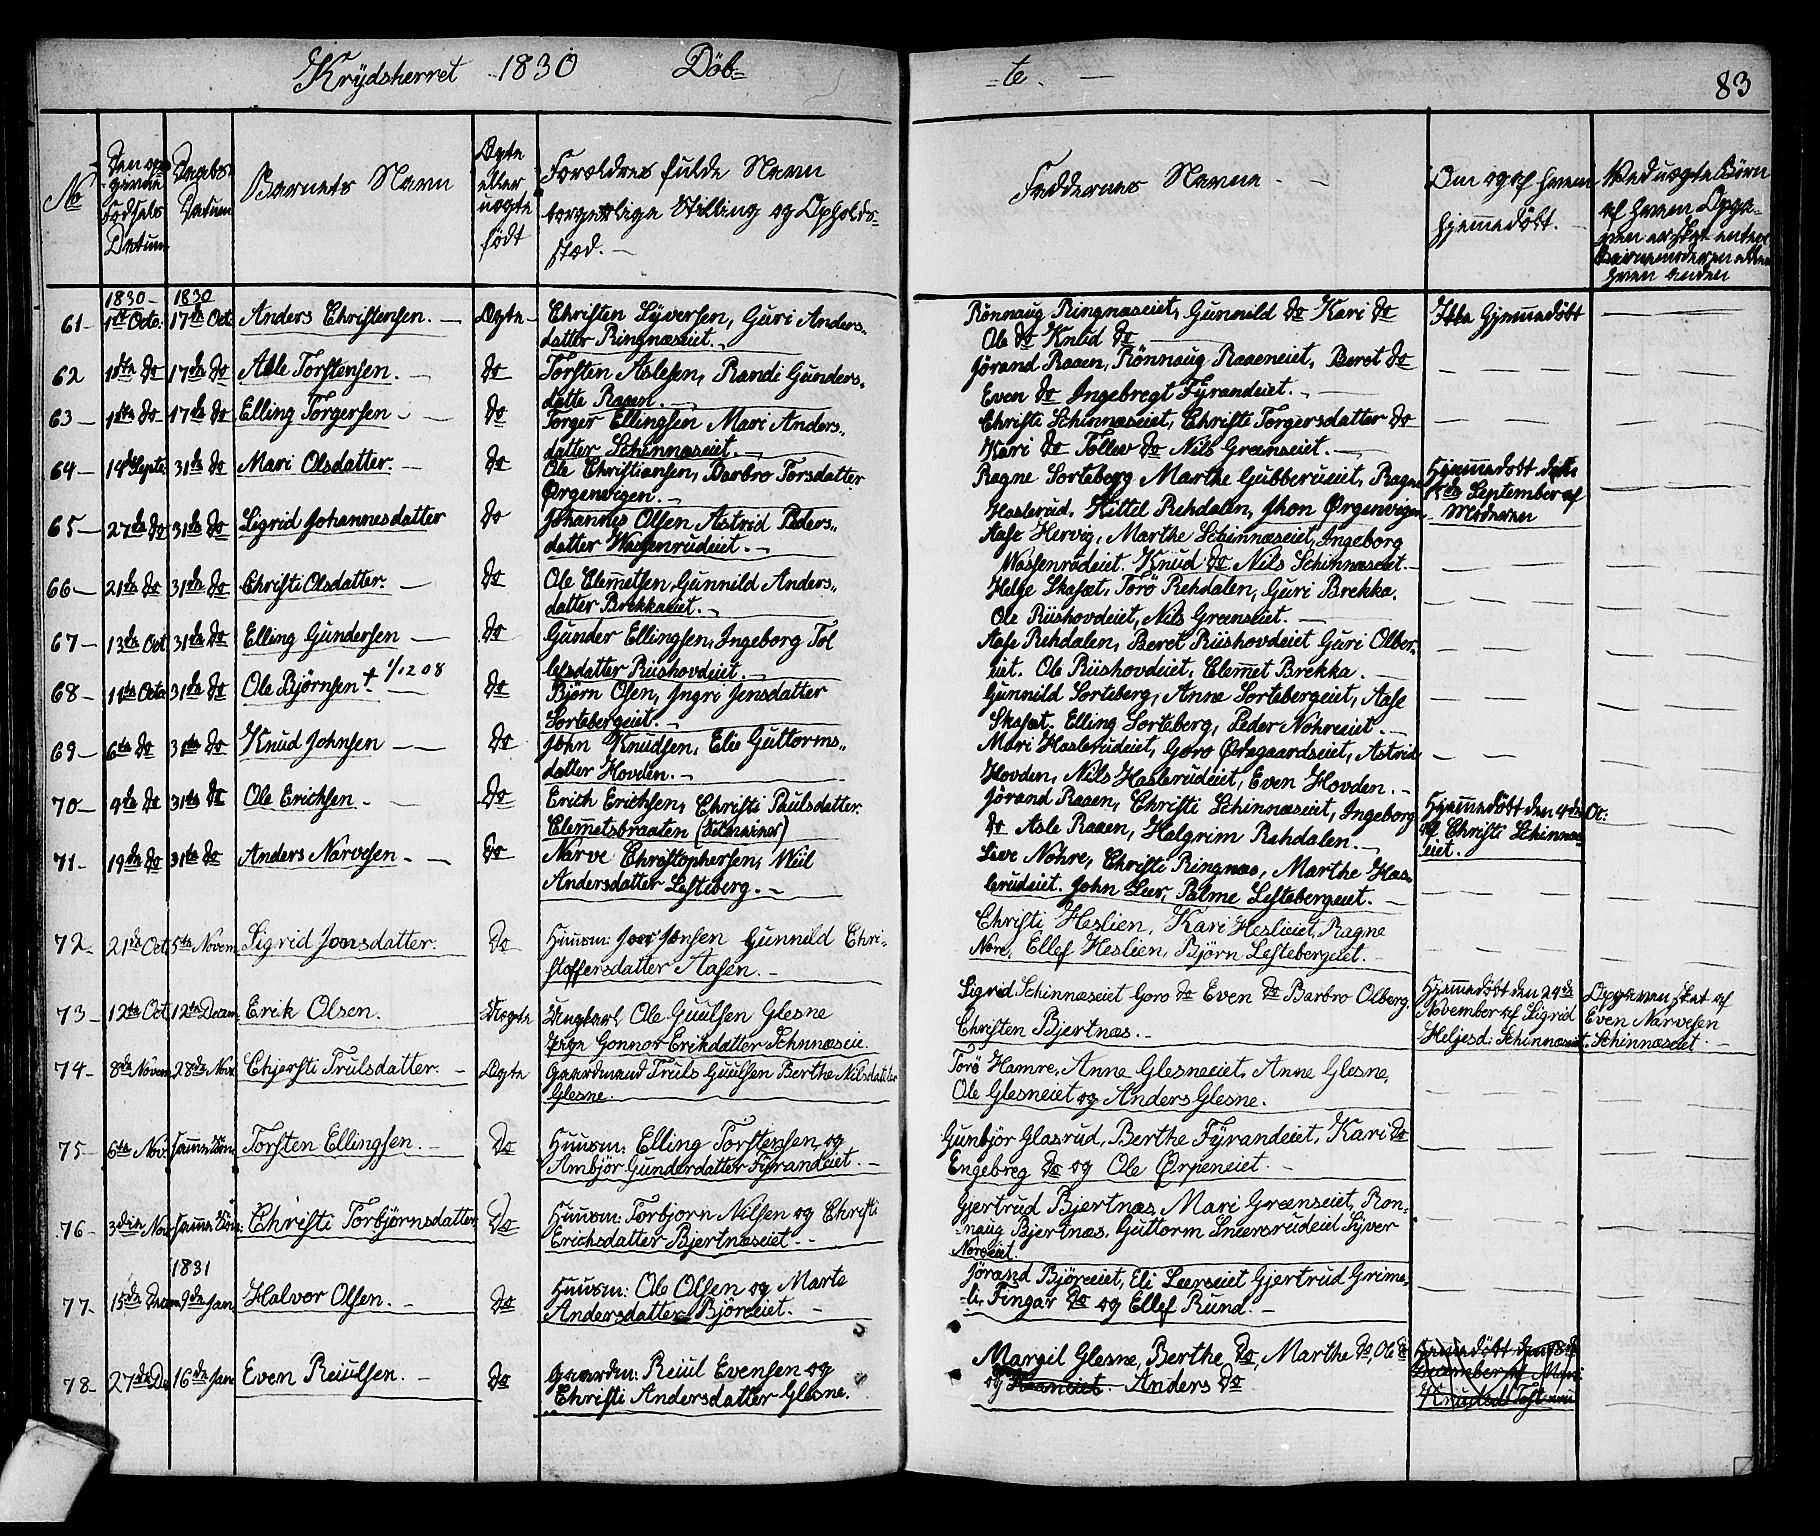 Krydsherret 1830 Döb=
=te. —
83
No
Den og-
gende
Fødsels
Datum
Daabs-
Datum
Barnets Navn
Ægte
eller
uægte
födt
Foroldres fulde Navn
borgerlige Stilling og Opholds-
sted. —
Faddernes Navne. —
Om og af hvem
hjemmedöbt. —
1830 — 1830
61 — 1ste Octo. 17de Oct. Anders Christensen. — Ægte — Christen Syversen, Guri Anders-
datter Ringnæseiet. —
Rönnaug Ringnæseiet, Gunnild do Kari do
Ole do Knud do —
Ikke Hjemmedöbt
62 1ste do 17de do Asle Torstensen. — do Torsten Aslesen, Randi Gunders-
datte Raaen. —
Jörand Raaen, Rönnaug Raaeneiet, Beret do
Even do Ingebregt Fyrandeiet. —
63 — 1ste do 17de do Elling Torgersen — do Torger Ellingsen Mari Anders-
datter Schinnæseiet. —
Christi Schinnæseiet, Christi Torgersdatter do
Kari do Tollev do Nils Grænseiet. —
64 — 14de Septe. 31te do Mari Olsdatter. — do Ole Christiansen, Barbro Torsdatter
Ørgenvigen. —
Ragne Sorteberg Marthe Gubberueiet, Ragne
Haslerud, Kittel Rehdalen, Jhon Ørgenvigen
Hjemmedöbt den
15de September af
Moderen
65 — 27de do 31te do Sigrid Johannesdatter do Johannes Olsen Astrid Peders-
datter Wassenrudeiet. —
Aase Hervig, Marthe Schinnæseiet, Ingeborg
Wassenrudeiet. Knud do Nils Schinnæseiet. —
66 — 21de do 31te do Christi Olsdatter. — do Ole Clemetsen, Gunnild Anders-
datter Brekkaeiet. —
Helge Skasæt, Torö Rehdalen, Guri Brekka,
Ole Riishovdeiet, Nils Grænseiet. —
67 — 13de Oct. 31te do Elling Gundersen — do Gunder Ellingsen, Ingeborg Tol
lefsdatter Riishovdeiet. —
Aase Rehdalen, Beret Riishovdeiet Guri Olber-
eiet. Ole Riishovdeiet, Clemet Brekka. —
68 — 11te Octo. 31te do Ole Björnsen + 1/12 08 do Björn Olsen, Ingri Jensdatter
Sortebergeiet. —
Gunnild Sorteberg, Anne Sortebergeiet, Aase
Skasæt. Elling Sorteberg, Peder Nohreeiet. —
69 — 6te do 31te do Knud Johnsen — do John Knudsen, Elie Guttorms-
datter Hovden. —
Mari Haslerudeiet, Goro Ødegaardseiet, Astrid
Hovden, Nils Haslerudeiet, Even Hovden. —
70 — 4de do 31te do Ole Erichsen — do Erich Erichsen, Christi Paulsdatter.
Clemetsbraaten
Jörand Raaen, Christi Schinnæseiet, Ingeborg
do Asle Raaen, Halgrim Rehdalen. —
Hjemmedöbt den 4de Oc:
af Christi Schinnæs-
eiet.
71 — 19de do 31te do Anders Narvesen — do Narve Christophersen,
Andersdatter Lesteberg. —
Live Nohre, Christi Ringnæs, Marthe Has-
lerudeiet. John Leer, Palme Lestebergeiet. —
72 — 21de Oct. 5te Novem. Sigrid Jonsdatter. do Huusm: Jonsen Gunnild Chri-
stoffersdatter Aasen. —
Christi Heslien, Kari Heslieiet, Ragne
Nore, Ellef Heslien, Björn Lestebergeiet. —
73 — 12te Oct. 12te Decem. Erik Olsen. Uægte Ungkarl Ole Guulsen Glesne
Pige Gonnor Erikdatter Schnnæseie.
Sigrid Schinnæseiet Goro do Even do Barbro Olberg,
Christen Bjertnæs. —
Hjemmedöbt den 24de
November af Sigrid
Heljesd: Schinnæseiet.
Opgaven sket af
Even Narvesen
Schinnæseiet. —
74 — 8de Novem. 28de Nov. Chjersti Trulsdatter. — Ægte Gaardmand Truls Guulsen Berthe Nilsdatter
Glesne.
Torö Hamre, Anne Glesneeiet. Anne Glesne,
Ole Glesneeiet og Anders Glesne.
75 — 6te Nov. Torsten Ellingsen. — do Huusm: Elling Torstensen og
Ambjör Gunderdatter Fyrandeiet. —
Gunbjör Glasrud, Berthe Fyrandeiet, Kari do
Engebreg do og Ole Ørpeneiet. —
76 — 3die Nov. Christi Torbjörnsdatter do Huusm: Torbjorn Nilsen og Christi
Erichsdatter Bjertnæseiet. —
Gjertrud Bjertnæs, Mari Grænseiet, Ron-
naug Bjertnæs, Guttorm Snersrudeiet Syver
Noreeiet.
1831
77 — 15de Decem. 9de Jan. Halvor Olsen. — do Huusm: Ole Olsen og Marte
Andersdatter Björeeiet. —
Jörand Björeeiet, Eli Leerseiet Gjertrud Grime-
li, Fingar do og Ellef Rund. —
78 — 27de De 16de Jan Even Reiulsen. — do Gaardm: Reiul Evensen og
Christi Andersdatter Glesne.
Margit Glesne, Berthe do, Marthe do, Ole do
og Anders do